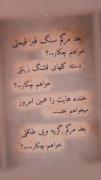 بعد مرگم سنگ قبر قیمتی
خواهم چکار..؟
دسته گلهای قشنگ زینتی
خواهم چکار..؟
خنده هایت را همین امروز
میخواهم نه بعد...
بعد مرگم گریه وبی طاقتی
خواهم چکار....؟